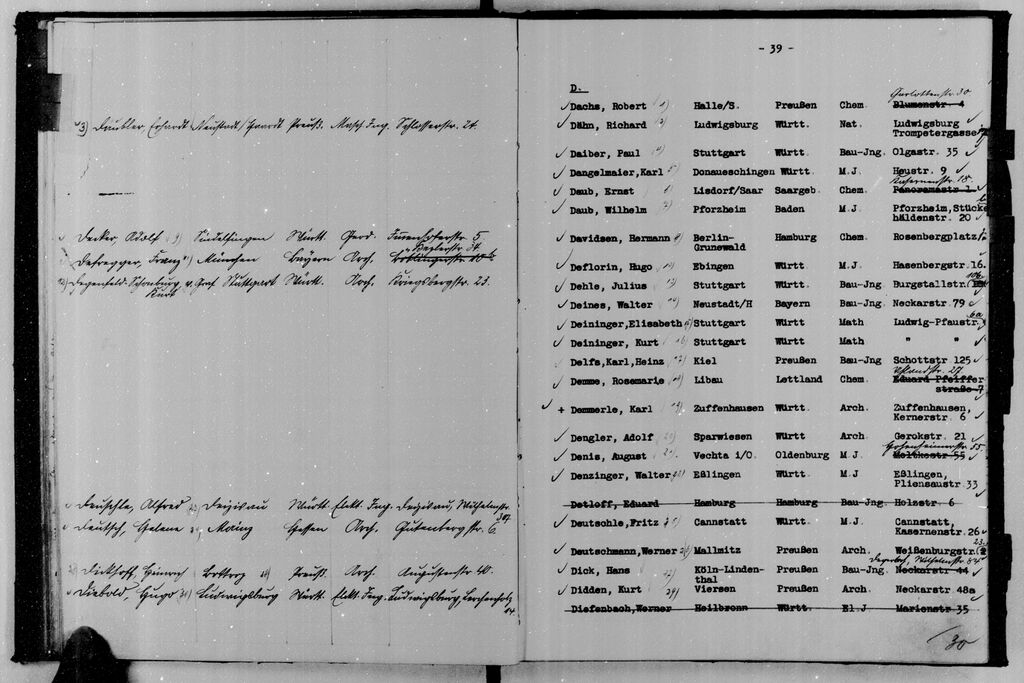 3) Däubler, Erhardt Neustadt/Haardt Preuß. Masch. Ing. Schlosserstr. 24.
Decker, Adolf 9) Sindelfingen Württ. Geod. 5
Defregger, Franz München Bayern Arch. Seestr. 34.
12) Degenfeld-Schonburg v. Graf Stuttgart Württ. Arch. Kriegsbergstr. 23.
Kurt
Deuschle, Alfred Deizisau Württ. Elekt. Ing. Deizisau, Wilhelmstr.
Deutsch, Helene Mainz Hessen Arch. Gutenbergstr. 6.
Dickhoff, Heinrich Bottrop Preuß. Arch. Augustenstr. 40.
Diebold Hugo Ludwigsburg Württ. Elekt. Ing. Ludwigsburg, Lerchenholz
14
- 39 -
D.
Charlottenstr. 30
Dachs, Robert 1) Halle/S. Preußen Chem. Blumenstr 4
Dähn, Richard 2) Ludwigsburg Württ. Nat. Ludwigsburg
Trompetergasse
Daiber, Paul 4) Stuttgart Württ. Bau-Jng. Olgastr. 35
Dangelmaier,Karl 5) Donaueschingen Württ. M.J Heustr. 9
Kasernenstr. 18.
Daub, Ernst 6) Lisdorf/Saar Saargeb. Chem. Panoramastr 1
Daub, Wilhelm 7) Pforzheim Baden M.J Pforzheim, Stücke
häldenstr. 20
Davidsen, Hermann 8) Berlin- Hamburg Chem. Rosenbergplatz
Grunewald
Deflorin, Hugo Ebingen Württ. M.J. Hasenbergstr. 16.
10b
Dehle, Julius 13) Stuttgart Württ. Bau-Jng. Burgstallstr.
Deines, Walter 14) Neustadt/H Bayern Bau-Jng. Neckarstr. 79
6a
Deininger,Elisabeth 15) Stuttgart Württ Math Ludwig-Pfaustr.
Deininger, Kurt 16) Stuttgart Württ Math " "
Delfs,Karl,Heinz 17) Kiel Preußen Bau-Jng Schottstr 125
Uhlandstr. 27
Demme, Rosemarie 18) Libau Lettland Chem. Eduard Pfeiffer
straße 7
+ Demmerle, Karl 19) Zuffenhausen Württ. Arch. Zuffenhausen,
Kernerstr. 6
Dengler, Adolf 20) Sparwiesen Württ Arch. Gerokstr. 21
Hohenheimerstr. 55.
Denis, August 21) Vechta i/O. Oldenburg M.J Moltkestr 55
Denzinger, Walter 22) Eßlingen Württ. M.J Eßlingen,
Pliensaustr. 33
Detloff, Eduard Hamburg Hamburg Bau-Jng Holzstr 6
Deutschle,Fritz Cannstatt Württ. M.J. Cannstatt,
Kasernenstr. 26
23.
Deutschmann,Werner 26) Mallmitz Preußen Arch. Weißenburgstr.
Degerloch, Wilhelmstr. 54
Dick, Hans 27) Köln-Linden- Preußen Bau-Jng. Neckarstr 44
thal
Didden, Kurt 29) Viersen Preußen Arch. Neckarstr 48a
Diefenbach,Werner Heilbronn Württ. El.J Marienstr 35
30